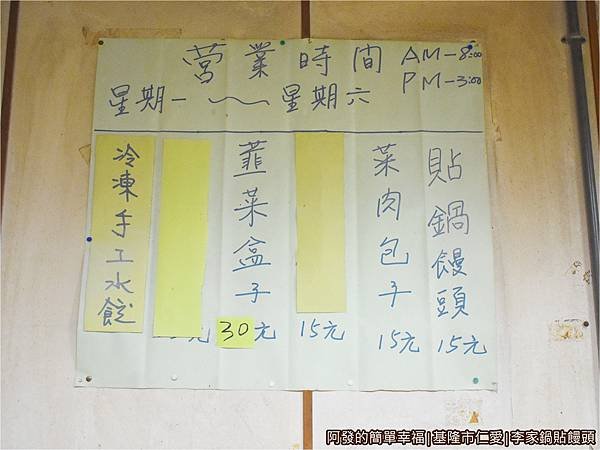 营業時間 AM-8:00
PM-3:00
星期一～星期六
貼鍋饅頭 15元
菜肉包子 15元
15元
韮菜盒子 30元
元
冷凍手工水餃
阿發的簡單幸福|基隆市仁愛|李家鍋貼饅頭